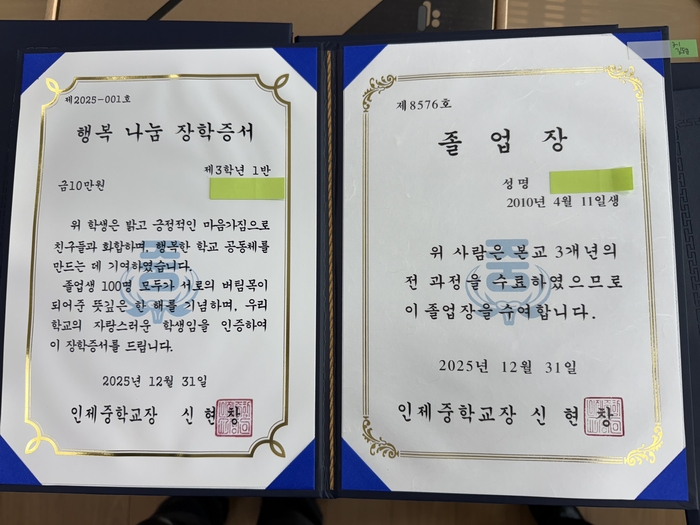 제2025-001호
행복 나눔 장학증서
제3학년 1반
금10만원
위 학생은 밝고 긍정적인 마음가짐으로
친구들과 화합하며, 행복한 학교 공동체를
만드는 데 기여하였습니다.
졸업생 100명 모두가 서로의 버팀목이
되어준 뜻깊은 한 해를 기념하며, 우리
학교의 자랑스러운 학생임을 인증하여
이 장학증서를 드립니다.
2025년 12월 31일
인제중학교장 신 현 창
제8576호
졸 업 장
성 명
2010년 4월 11일생
위 사람은 본교 3개년의
전 과정을 수료하였으므로
이 졸업장을 수여합니다.
2025년 12월 31일
인제중학교장 신 현 창